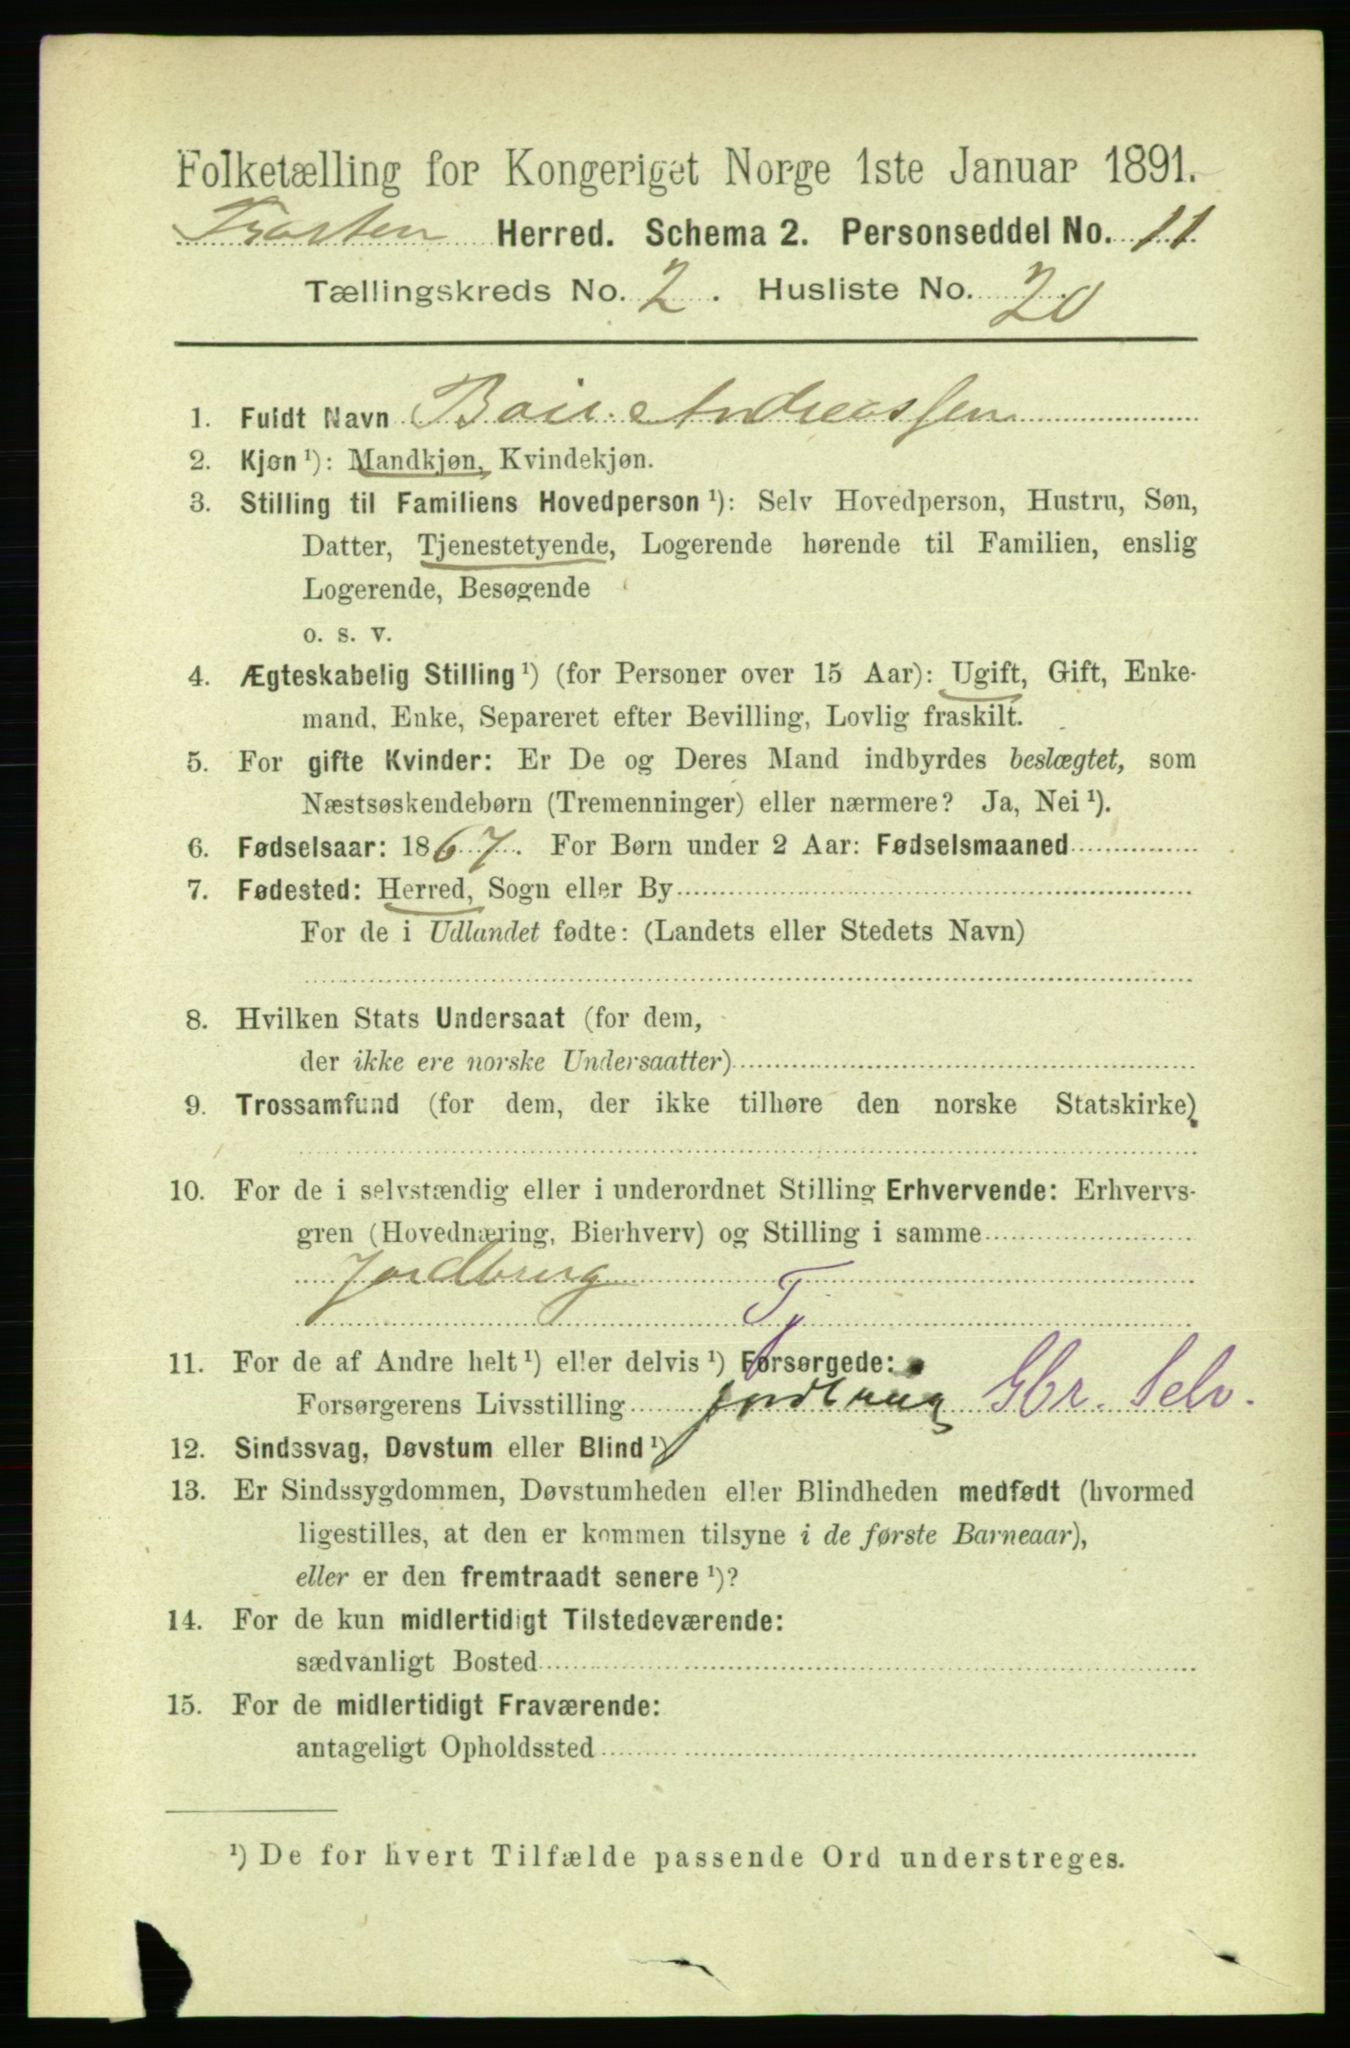 Folketælling for Kongeriget Norge 1ste Januar 1891.
Trøsten Herred. Schema 2. Personseddel No. 11
Tællingskreds No. 2. Husliste No. 20
1. Fuldt Navn Andreassen
2. Kjøn ¹): Mandkjøn, Kvindekjøn.
3. Stilling til Familiens Hovedperson ¹): Selv Hovedperson, Hustru, Søn,
Datter, Tjenestetyende, Logerende hørende til Familien, enslig
Logerende, Besøgende
o. s. v.
4. Ægteskabelig Stilling ¹) (for Personer over 15 Aar): Ugift, Gift, Enke-
mand, Enke, Separeret efter Bevilling, Lovlig fraskilt.
5. For gifte Kvinder: Er De og Deres Mand indbyrdes beslægtet, som
Næstsøskendebørn (Tremenninger) eller nærmere? Ja, Nei ¹).
6. Fødselsaar: 1867. For Børn under 2 Aar: Fødselsmaaned
7. Fødested: Herred, Sogn eller By
For de i Udlandet fødte: (Landets eller Stedets Navn)
8. Hvilken Stats Undersaat (for dem,
der ikke ere norske Undersaatter)
9. Trossamfund (for dem, der ikke tilhøre den norske Statskirke)
10. For de i selvstændig eller i underordnet Stilling Erhvervende: Erhvervs-
gren (Hovednæring, Bierhverv) og Stilling i samme
Jordbrug
Tj
11. For de af Andre helt ¹) eller delvis ¹) Forsørgede:
Forsørgerens Livsstilling Jordbrug Gbr. Selv.
12. Sindssvag, Døvstum eller Blind ¹)
13. Er Sindssygdommen, Døvstumheden eller Blindheden medfødt (hvormed
ligestilles, at den er kommen tilsyne i de første Barneaar),
eller er den fremtraadt senere ¹)?
14. For de kun midlertidigt Tilstedeværende:
sædvanligt Bosted
15. For de midlertidigt Fraværende:
antageligt Opholdssted
¹) De for hvert Tilfælde passende Ord understreges.